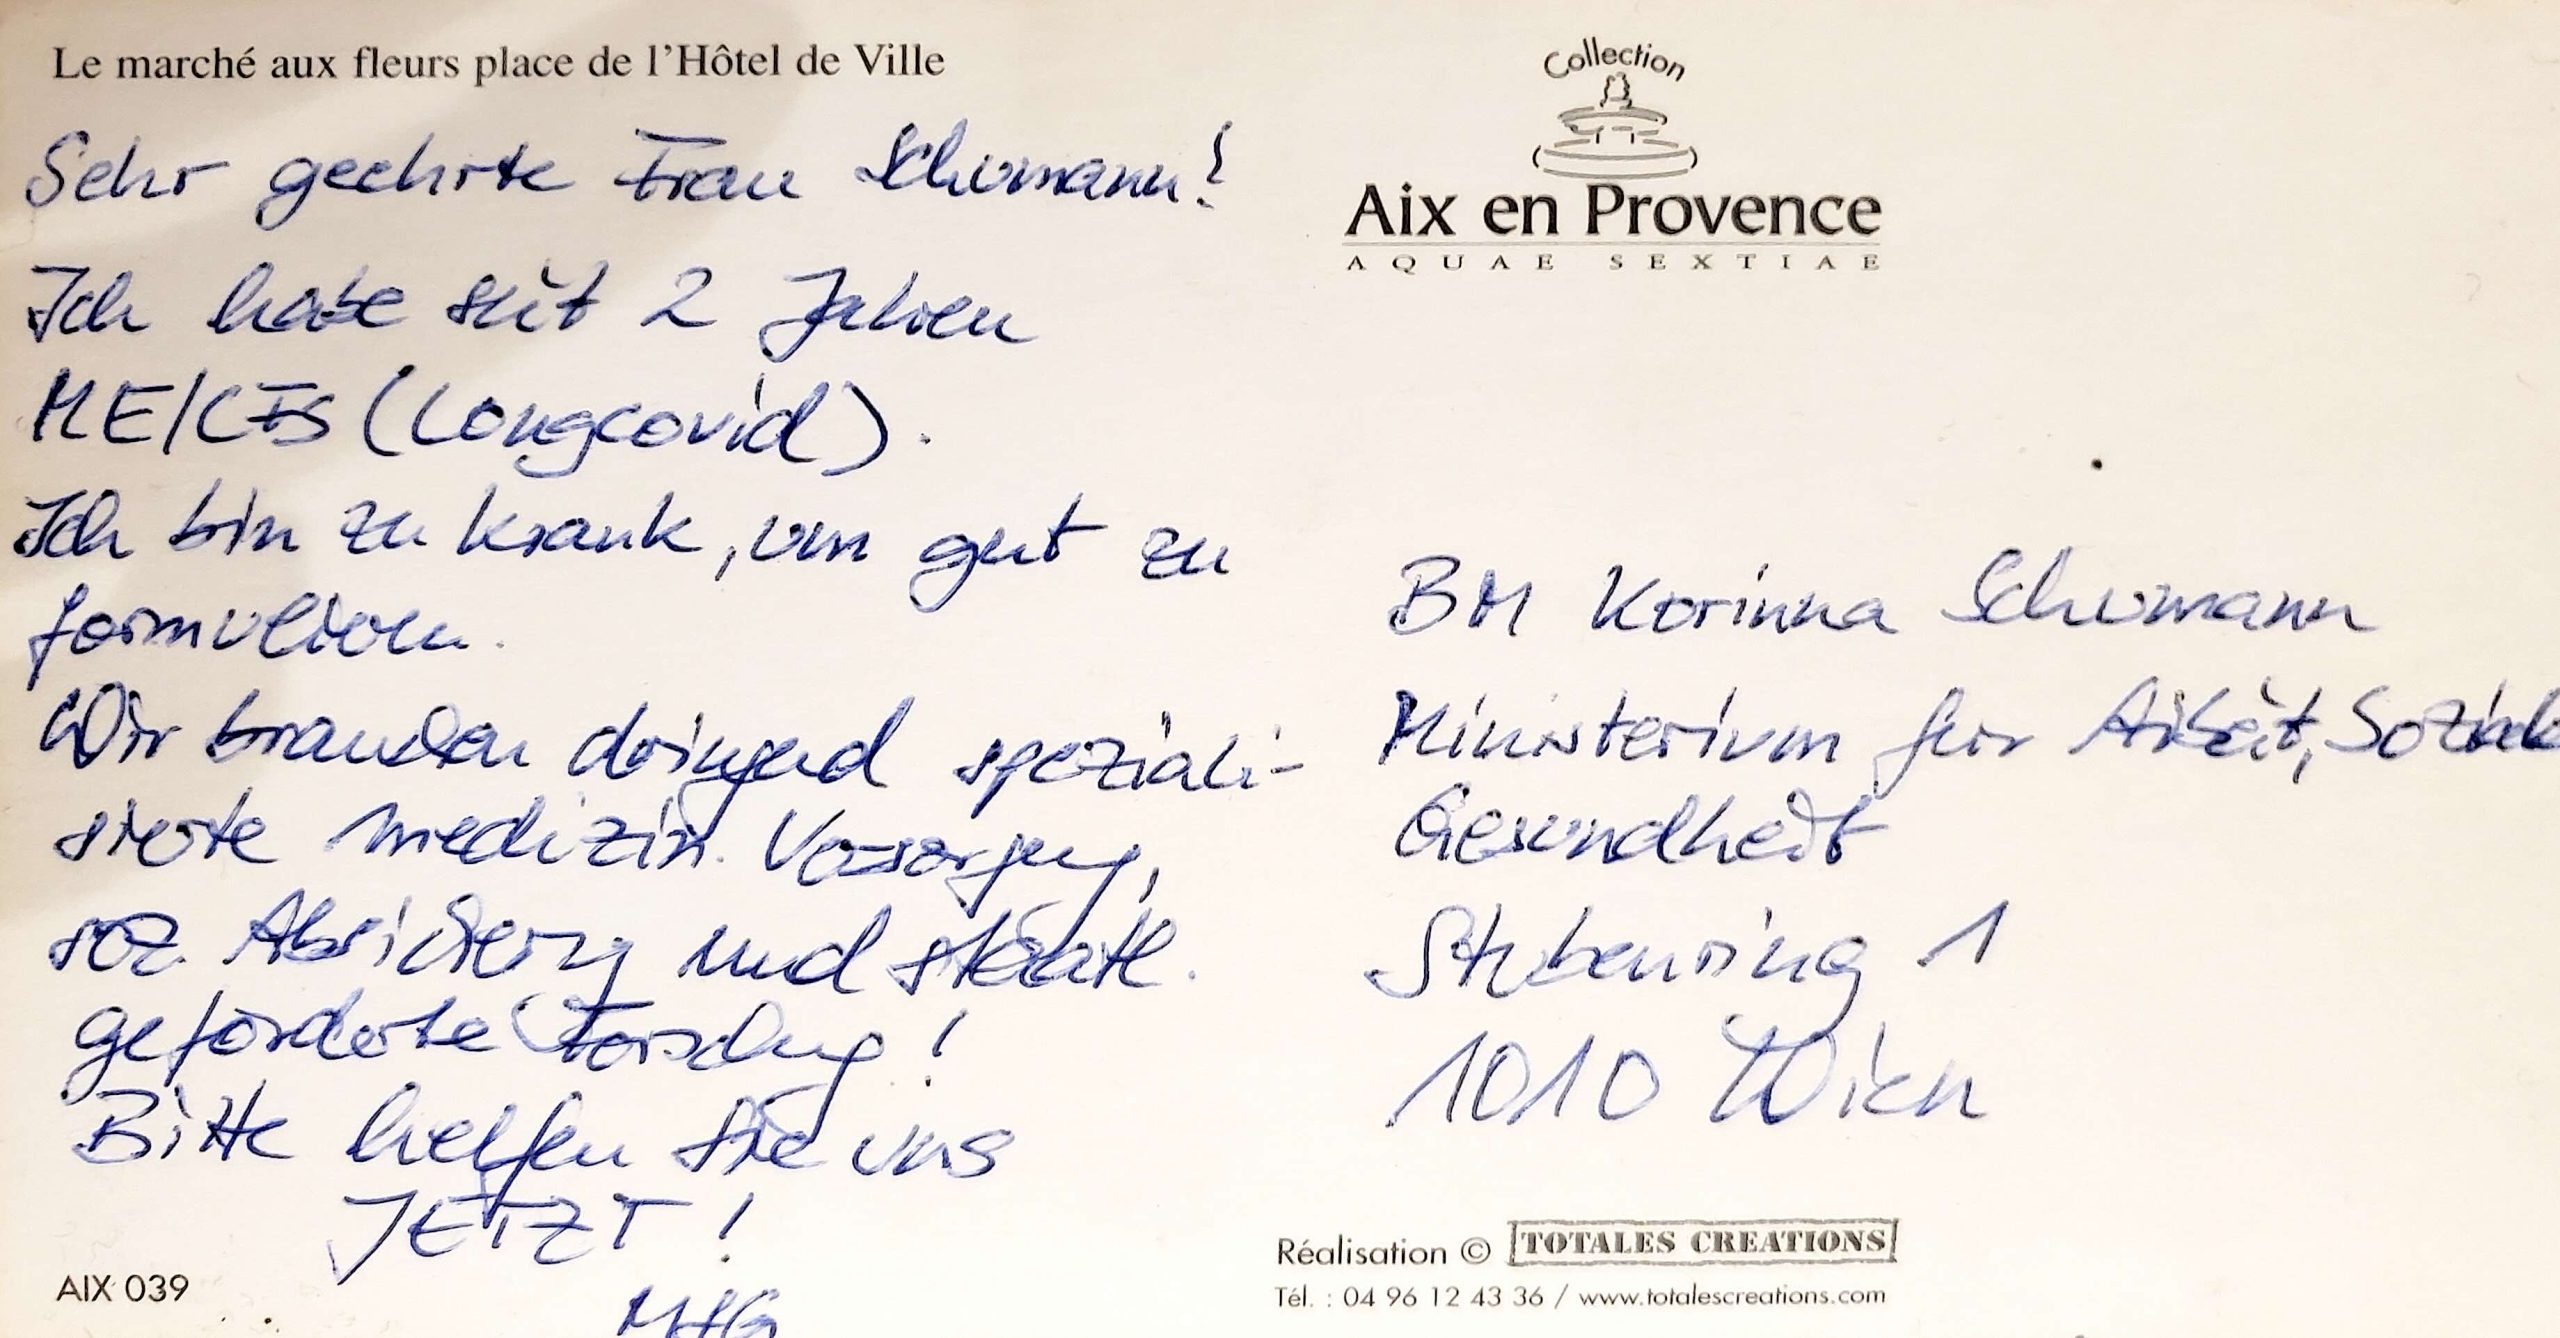 Le marché aux fleurs place de l'Hôtel de Ville
Sehr geehrte Frau Schumann!
Ich habe seit 2 Jahren
ME/CFS (Longcovid).
Ich bin zu krank, um gut zu
formulieren.
Wir brauchen dringend speziali-
sierte medizin. Versorgung,
soz. Absicherung und staatl.
geförderte Forschung!
Bitte helfen Sie uns
JETZT!
MfG
AIX 039
Collection
Aix en Provence
AQUAE SEXTIAE
BM Korinna Schumann
Ministerium für Arbeit, Soziale
Gesundheit
Stubenring 1
1010 Wien
Réalisation © TOTALES CREATIONS
Tél. : 04 96 12 43 36 / www.totalescreations.com